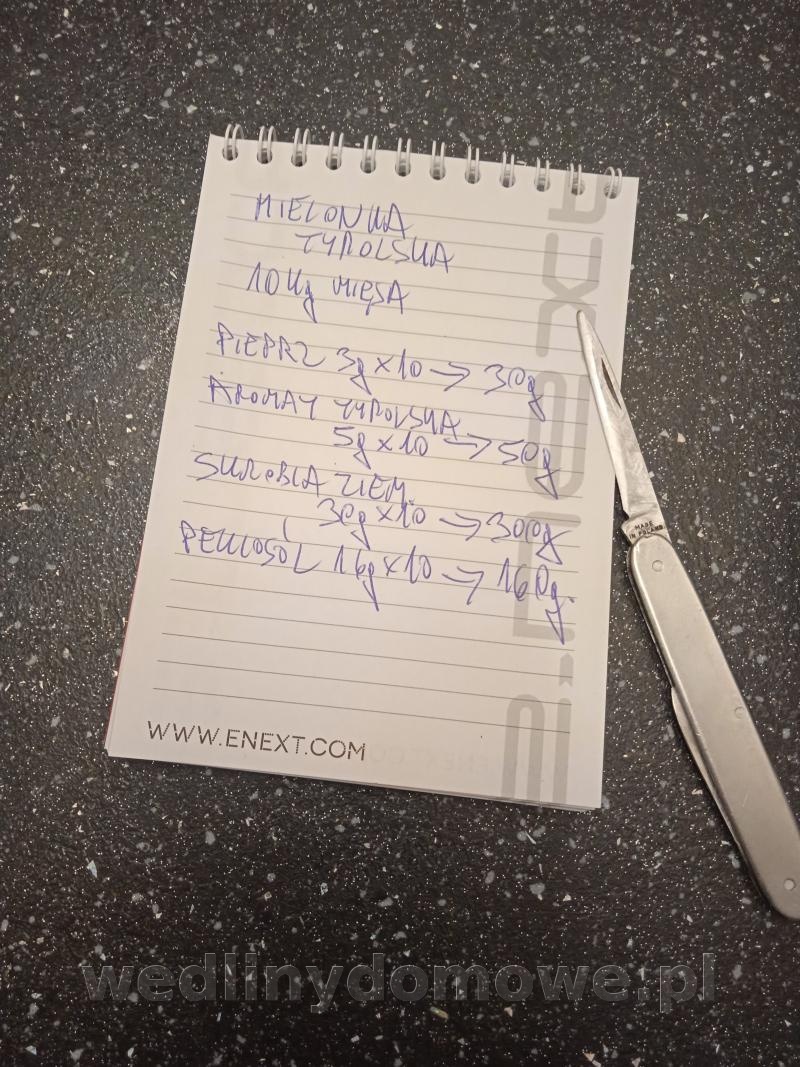 MIELONKA
TYROLSKA
10 kg MIĘSA
PIEPRZ 3g x 10 → 30g
AROMAT TYROLSKA
5g x 10 → 50g
SKROBIA ZIEM.
30g x 10 → 300g
PEKLOSÓL 16g x 10 → 160g.
WWW.ENEXT.COM
MADE
IN POLAND
wedlinydomowe.pl